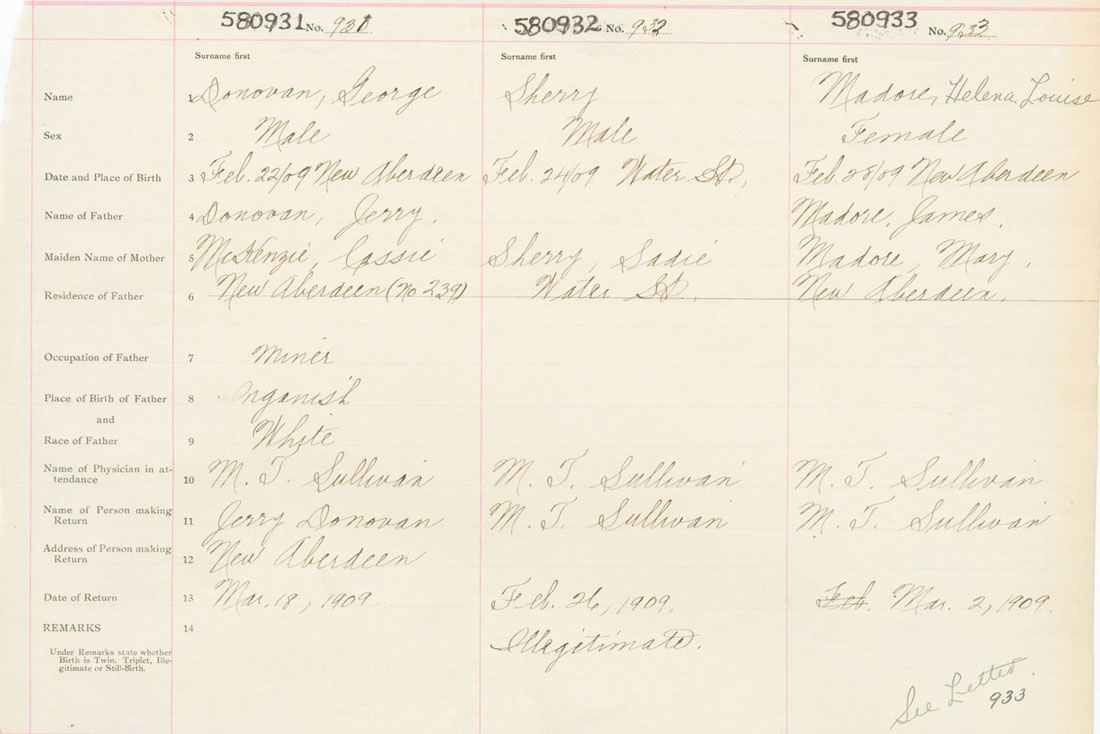 580931 No. 931 580932 No. 932 580933 No. 933
Surname first Surname first Surname first
Name 1 Donovan, George Sherry Madore, Helena Louise
Sex 2 Male Male Female
Date and Place of Birth 3 Feb. 22/09 New Aberdeen Feb. 24/09 Water St., Feb. 28/09 New Aberdeen
Name of Father 4 Donovan, Jerry. Madore, James.
Maiden Name of Mother 5 McKenzie, Cassie Sherry, Sadie Madore, Mary.
Residence of Father 6 New Aberdeen (No 239) Water St. New Aberdeen.
Occupation of Father 7 Miner
Place of Birth of Father 8 Inganish
and
Race of Father 9 White
Name of Physician in at-
tendance 10 M. T. Sullivan M. T. Sullivan M. T. Sullivan
Name of Person making
Return 11 Jerry Donovan M. T. Sullivan M. T. Sullivan
Address of Person making
Return 12 New Aberdeen
Date of Return 13 Mar. 18, 1909. Feb. 26, 1909. Feb. Mar. 2, 1909.
REMARKS 14 Illegitimate.
Under Remarks state whether
Birth is Twin, Triplet, Ille-
gitimate or Still-Birth.
See Letter.
933